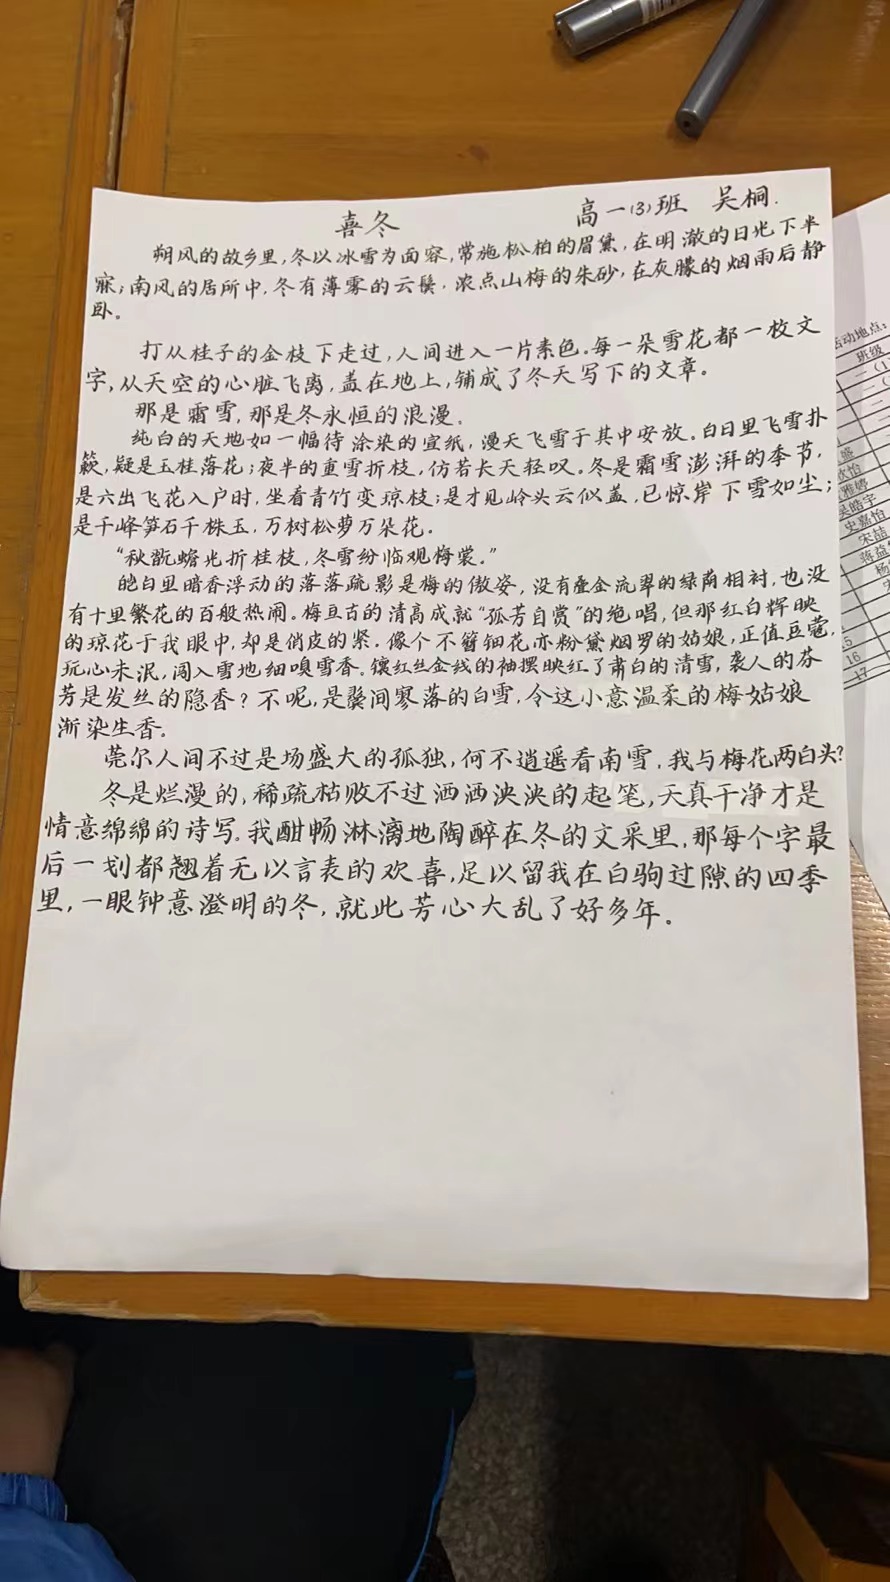 喜冬
高一(3)班 吴桐.
朔风的故乡里,冬以冰雪为面容,常施松柏的眉黛,在明澈的日光下半
寐;南风的居所中,冬有薄雾的云鬓,浓点山梅的朱砂,在灰朦的烟雨后静
卧。
打从桂子的金枝下走过,人间进入一片素色。每一朵雪花都一枚文
字,从天空的心脏飞离,盖在地上,铺成了冬天写下的文章。
那是霜雪,那是冬永恒的浪漫。
纯白的天地如一幅待涂染的宣纸,漫天飞雪于其中安放。白日里飞雪扑
簌,疑是玉桂落花;夜半的重雪折枝,仿若长天轻叹。冬是霜雪澎湃的季节,
是六出飞花入户时,坐看青竹变琼枝;是才见岭头云似盖,已惊岸下雪如尘;
是千峰笋石千株玉,万树松萝万朵花。
“秋翫蟾光折桂枝,冬雪纷临观梅裳。”
皑白里暗香浮动的落落疏影是梅的傲姿,没有叠金流翠的绿荫相衬,也没
有十里繁花的百般热闹。梅亘古的清高成就“孤芳自赏”的绝唱,但那红白辉映
的琼花于我眼中,却是俏皮的紧。像个不簪钿花亦粉黛烟罗的姑娘,正值豆蔻,
玩心未泯,闯入雪地细嗅雪香。镶红丝金线的袖摆映红了肃白的清雪,袭人的芬
芳是发丝的隐香?不呢,是鬓间寥落的白雪,令这小意温柔的梅姑娘
渐染生香。
莞尔人间不过是场盛大的孤独,何不逍遥看南雪,我与梅花两白头?
冬是烂漫的,稀疏枯败不过洒洒泱泱的起笔,天真干净才是
情意绵绵的诗写。我酣畅淋漓地陶醉在冬的文采里,那每个字最
后一划都翘着无以言表的欢喜,足以留我在白驹过隙的四季
里,一眼钟意澄明的冬,就此芳心大乱了好多年。
活动地点:
班级
一(1
吴皓宇
史嘉怡
宋喆
蒋益
杨
15
16
17